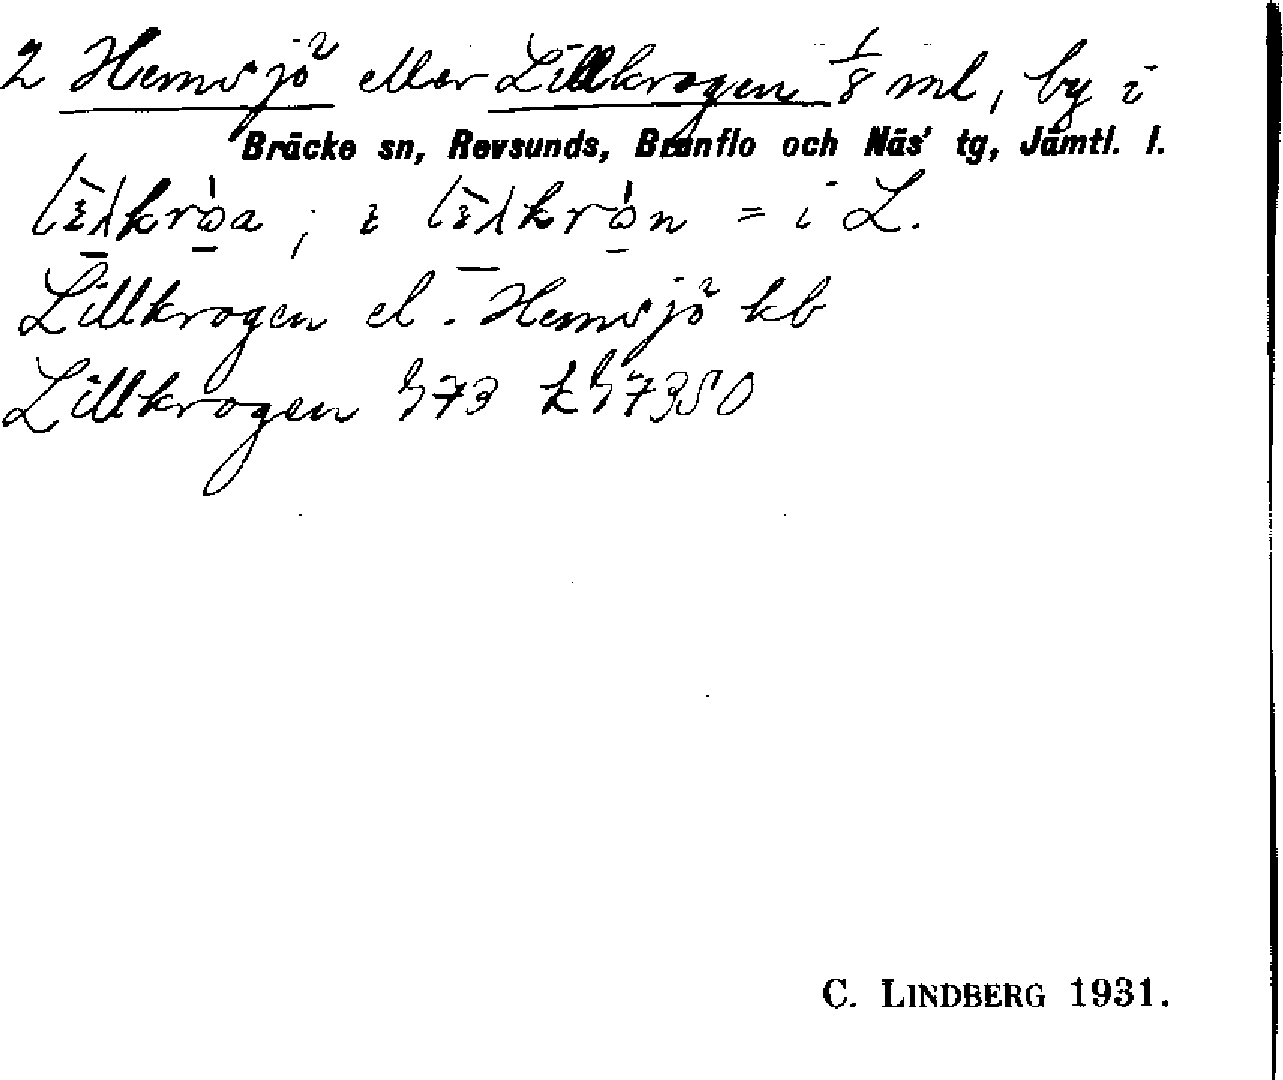 2 Hemsjö eller Lillkrogen 1/8 ml, by i
Bräcke sn, Revsunds, Brunflo och Näs' tg, Jämtl. l.
= i L.
Lillkrogen el. Hemsjö kb
Lillkrogen
C. LINDBERG 1931.